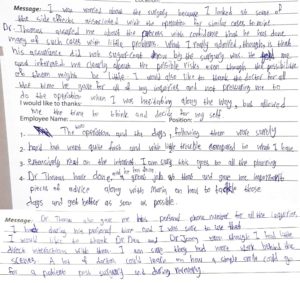 Message: I was worried about the surgery because I looked at some of
the side effects associated with the operation for similar cases to mine
Dr. Thomas assured me about the process with confidence that he has done
many of such cases with little problems. What I really admired though is that
his assurance did not sugar coat about the surgery was. He told me
and informed me clearly about the possible risks even though the possibilities
of them might be little. I would also like to thank the doctor for all
the time he gave for all of my inquiries and not persuading me to
do the operation when I was hesitating along the way, but allowed
I would like to thanks: me the time to think and decide for my self
Employee Name: Position:
1. The operation and the days following them were surely
2. hard but went quite fast and with little trouble compared to what I have
3. extensively read on the internet. I am sure this goes to all the planning
4. Dr Thomas have done, and he has done a great job at that and gave me important
pieces of advice along with Maria, on how to tackle those
days and get better as soon as possible.
Message: Dr Thomas also gave me his personal phone number for all the inquiries
I had during his personal time and I was sure to use that
I would like to thank Dr Dan and Dr Jenny even though I had little
direct interactions with them I am sure they had more work behind the
scenes. A lot of doctors could learn on how a simple smile could go
for a patients post surgery and during recovery